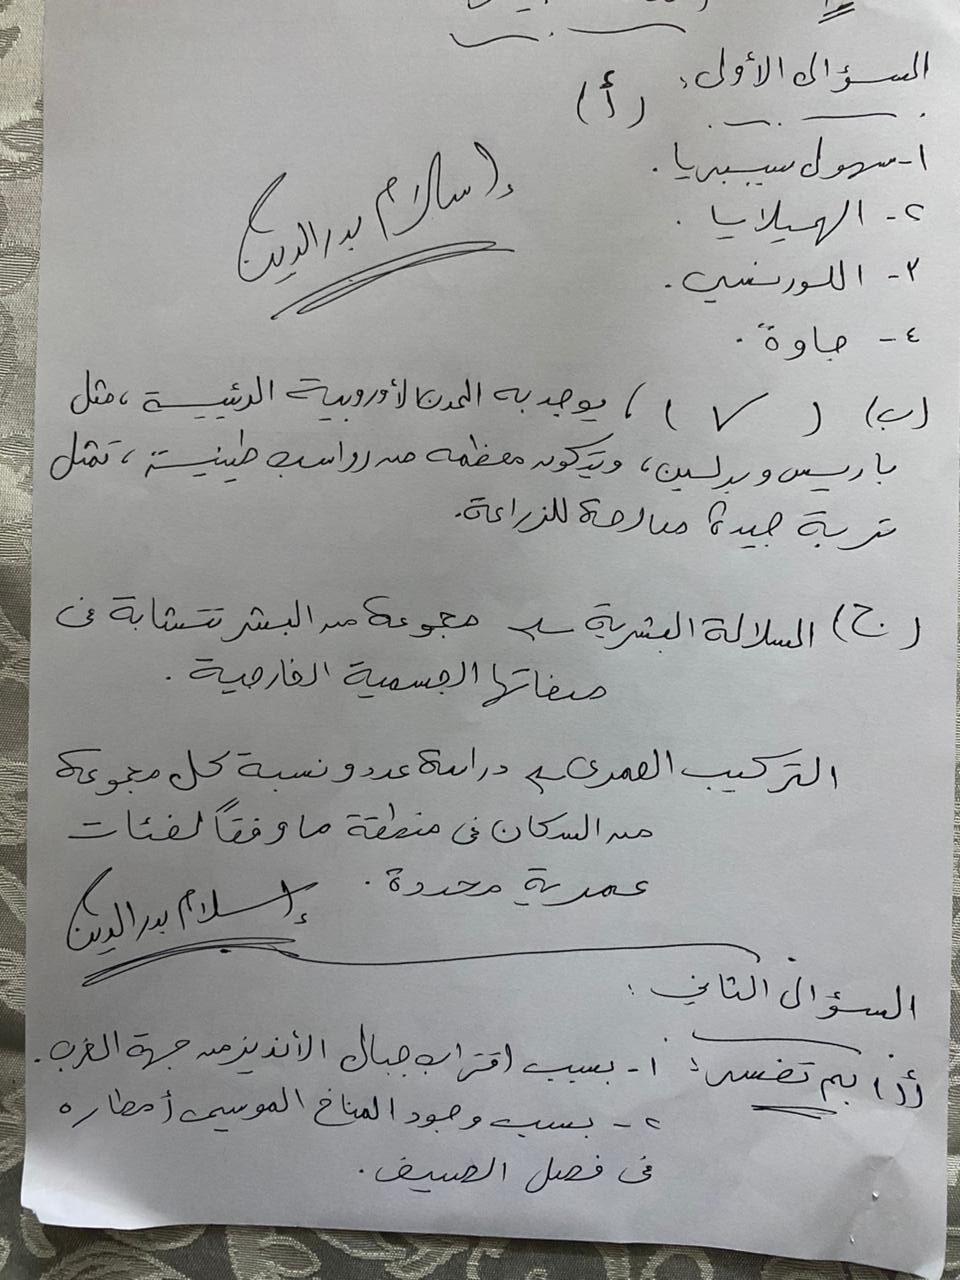 السؤال الأول:
(أ)
١- سهول سيبيريا.
٢- الهيملايا.
٣- اللورنسي.
٤- جاوة.
إسلام بدر الدين
(ب) ( ✓ ) ، يوجد به المدن الأوروبية الرئيسية ، مثل
باريس وبرلين، ويتكون معظمه من رواسب طينية ، تمثل
تربة جيدة صالحة للزراعة.
(ج) السلالة البشرية ← مجموعة من البشر تتشابة فى
صفاتها الجسمية الخارجية .
التركيب العمرى ← دراسة عدد ونسبة كل مجموعة
من السكان فى منطقة ما وفقاً لفئات
عمرية محددة .
إسلام بدر الدين
السؤال الثاني :
(أ) بم تفسر : ١- بسبب اقتراب جبال الأنديز من جهة الغرب .
٢- بسبب وجود المناخ الموسمى أمطاره
فى فصل الصيف .